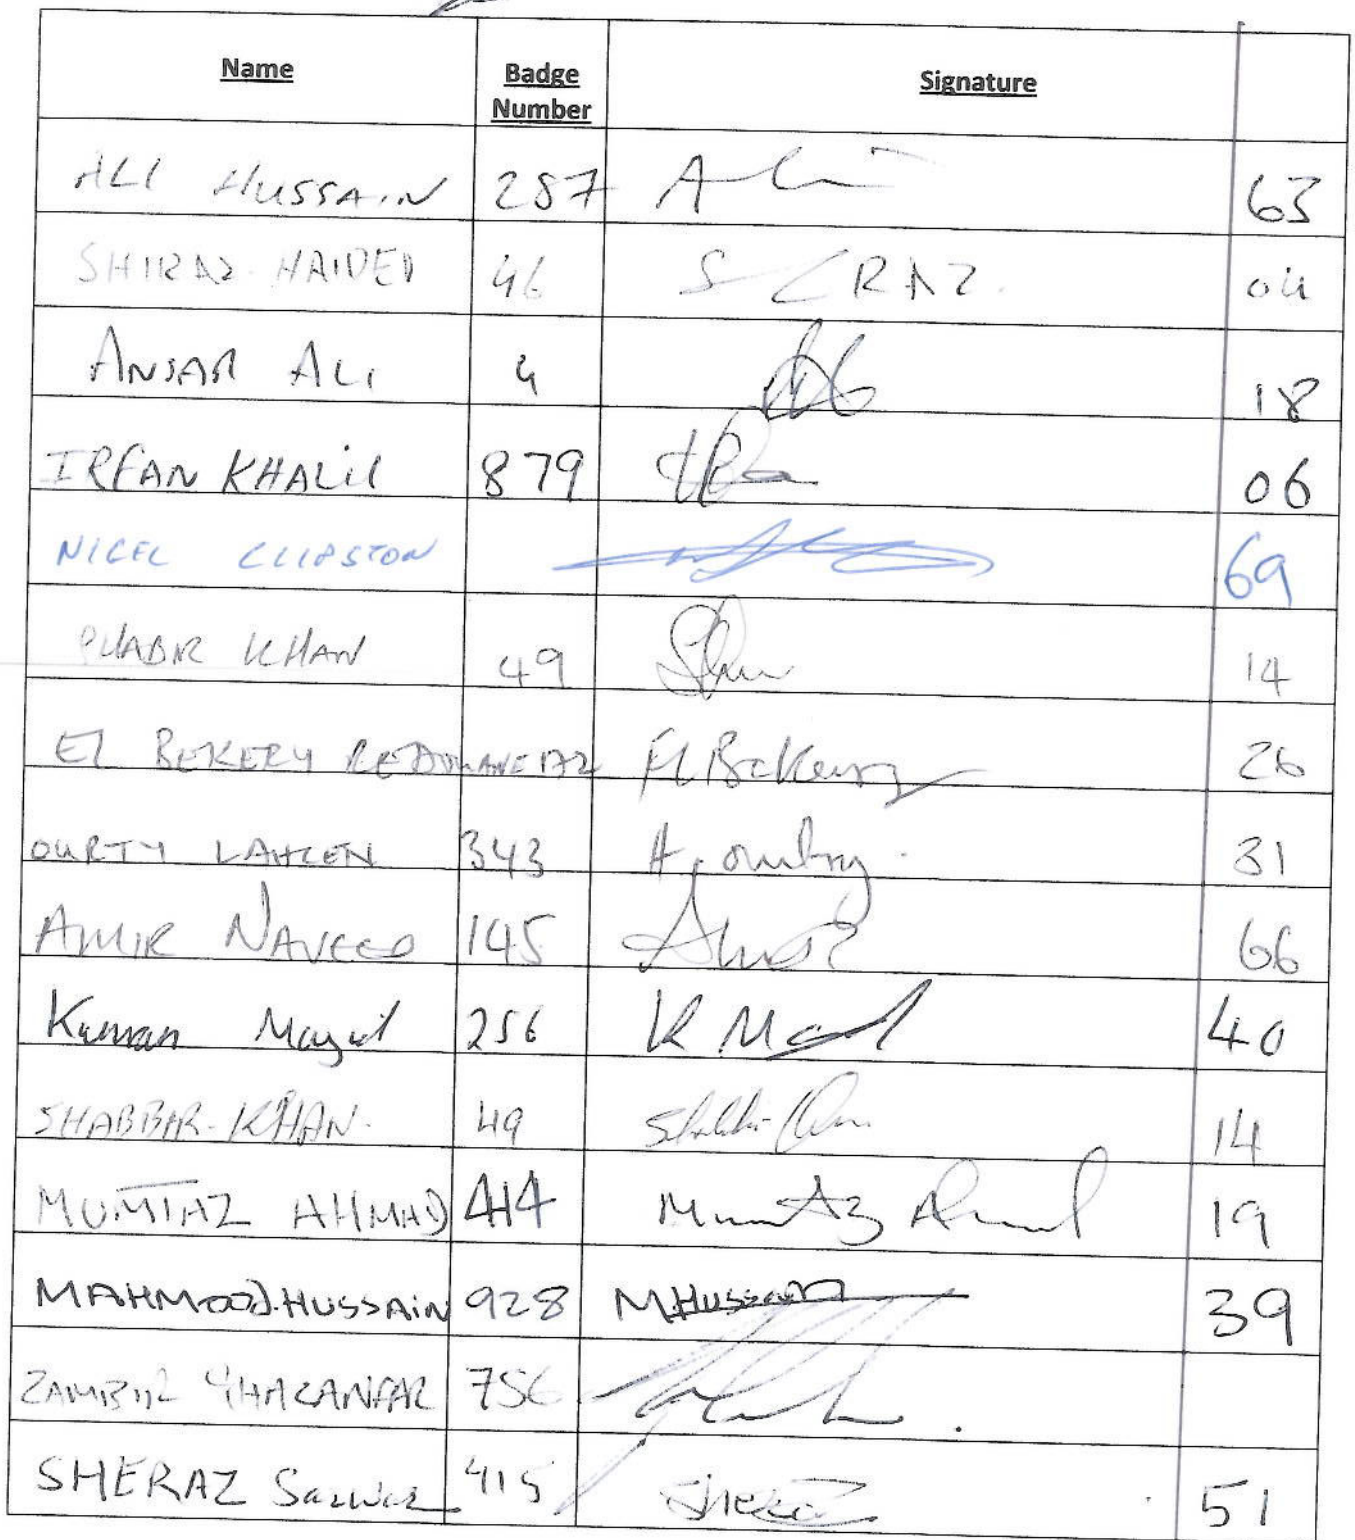 Name Badge Number Signature
ALI HUSSAIN 257 63
SHIRAZ HAIDER 46 SHIRAZ 04
ANSAR ALI 4 18
IRFAN KHALIL 879 06
NIGEL CLIPSTON 69
SHABIR KHAN 49 14
EL BEKERY REDOUANE El Bekery 26
OURTY LAHCEN 343 31
AMIR NAVEED 145 66
Kamran Majid 256 K M 40
SHABBIR KHAN 49 14
MUMTAZ AHMAD 414 Mumtaz Ahmad 19
MAHMOOD HUSSAIN 928 M.Hussain 39
ZAMEER GHAZANFAR 756
SHERAZ Sarwar 415 Sheraz 51